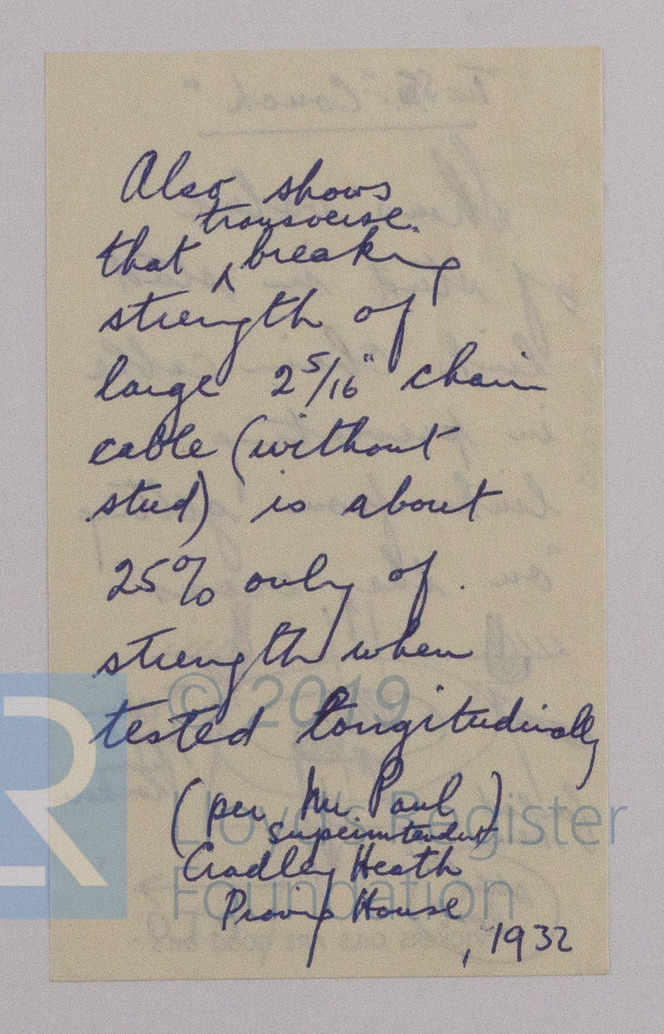 Also shows
transverse
that ‸ breaking
strength of
large 2 5/16" chain
cable (without
stud) is about
25% only of
strength when
tested longitudinally
(per Mr Paul)
Superintendent
Cradley Heath
Proving House
, 1932
© 2019
Lloyd's Register
Foundation
"The SS. "Couch"